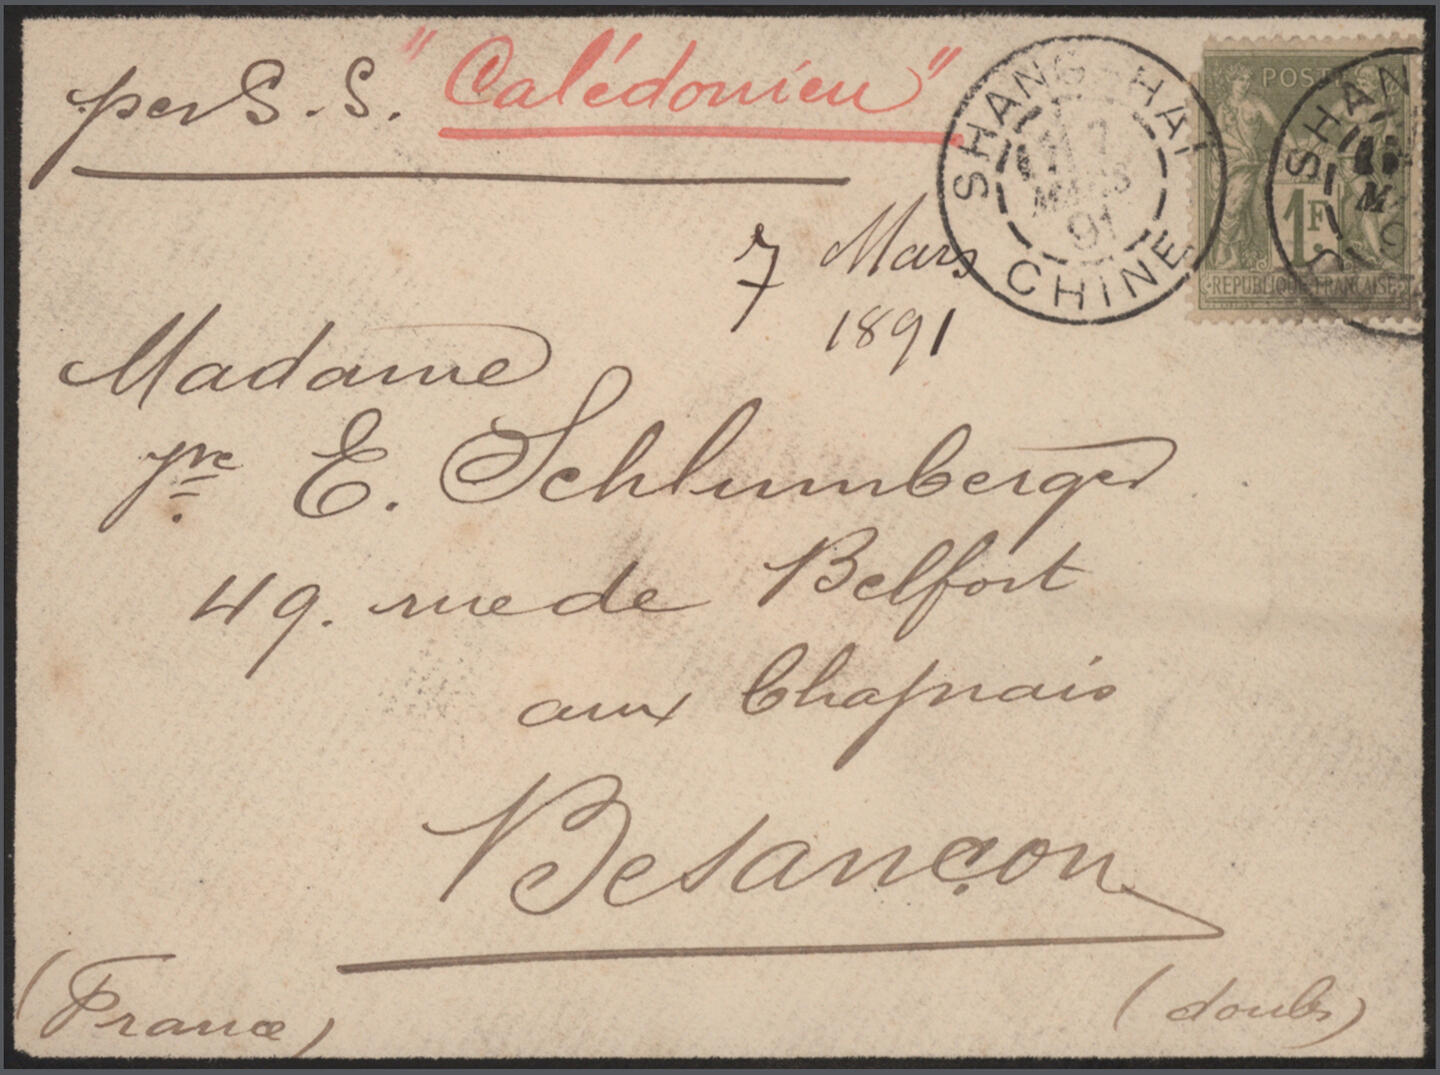 per S.S. "Calédonien"
SHANG-HAÏ
7
MARS
91
CHINE
POSTES
1F
REPUBLIQUE FRANCAISE
SHAN
M
9
7 Mars
1891
Madame
E. Schlumberger
49. rue de Belfort
aux Chaprais
Besançon
(France)
(doubs)